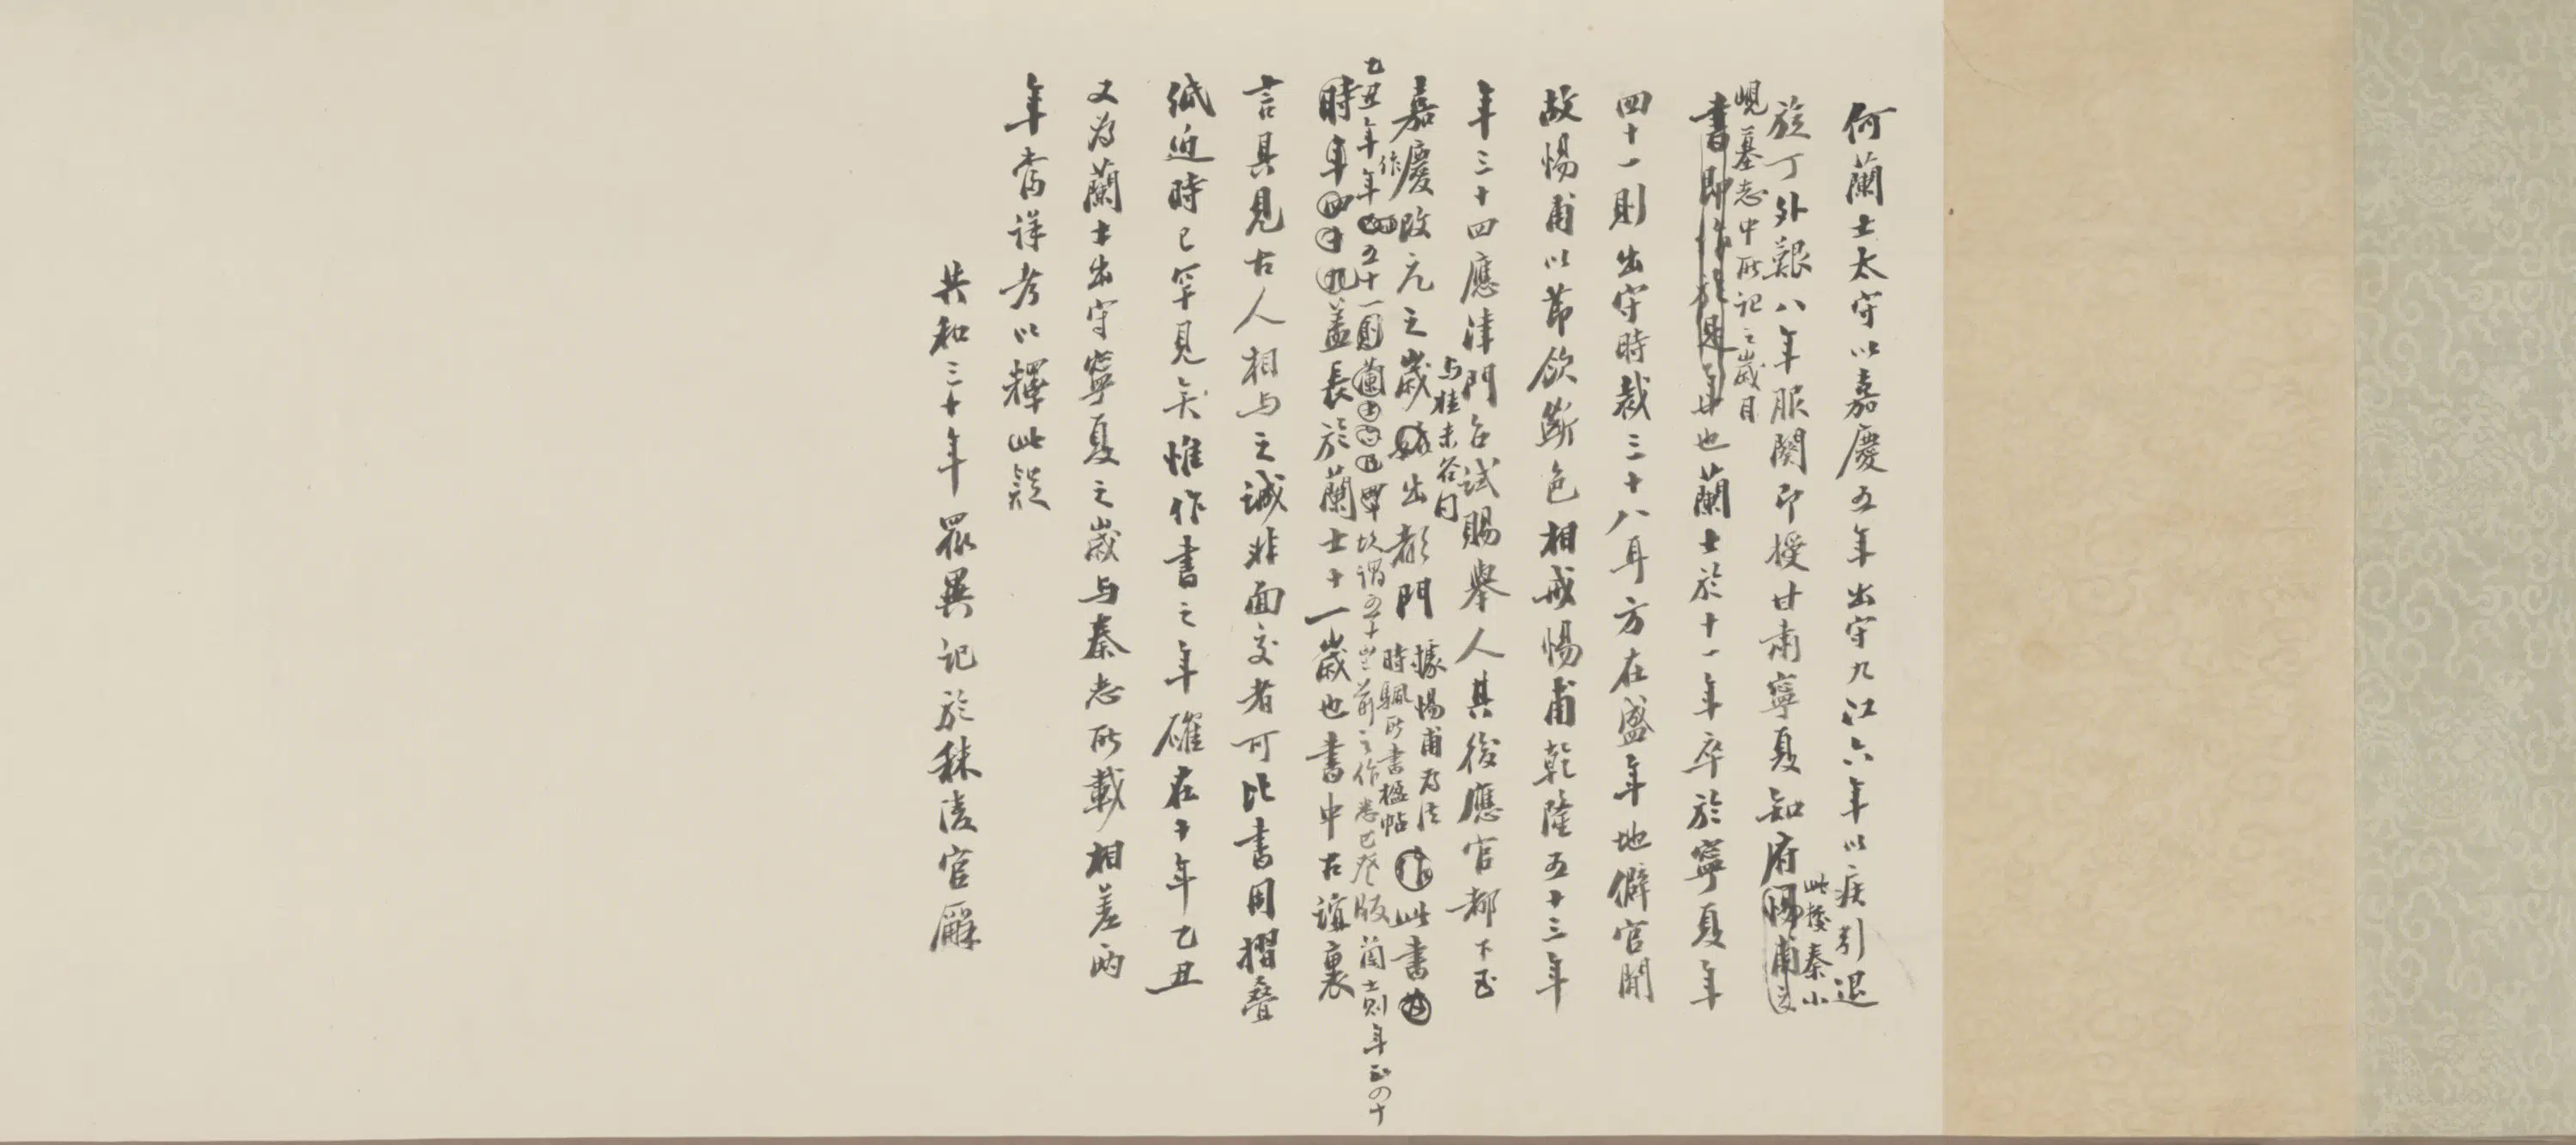 何蘭士太守以嘉慶五年出守九江六年以疾引退
旋丁外艱八年服闋即授甘肅寧夏知府惕甫之
此據秦小
峴墓志中所記之歲月
書即作於是年也蘭士於十一年卒於寧夏年
四十一則出守時裁三十八耳方在盛年地僻官閒
故惕甫以節飲斷色相戒惕甫乾隆五十三年
年三十四應津門召試賜舉人其後應官都下至
與桂未谷同
嘉慶改元之歲出都門
據惕甫為法
時颿所書楹帖
作此書
乙丑年作年五十一蘭士四十故謂五十以前之作悉已發版蘭士則年正四十
時年四十九蓋長於蘭士十一歲也書中古誼裏
言具見古人相与之誠非面交者可比書用摺疊
紙近時已罕見矣惟作書之年確在十年乙丑
又為蘭士出守寧夏之歲与秦志所載相差兩
年當詳考以釋此疑
共和三十年眾異記於秣陵官廨